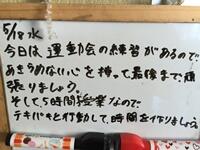 5/18 水
今日は、運動会の練習があるので、
あきらめない心を持って最後まで頑
張りましょう。
そして、5時間授業なので
テキパキと行動して、時間を作りましょう。